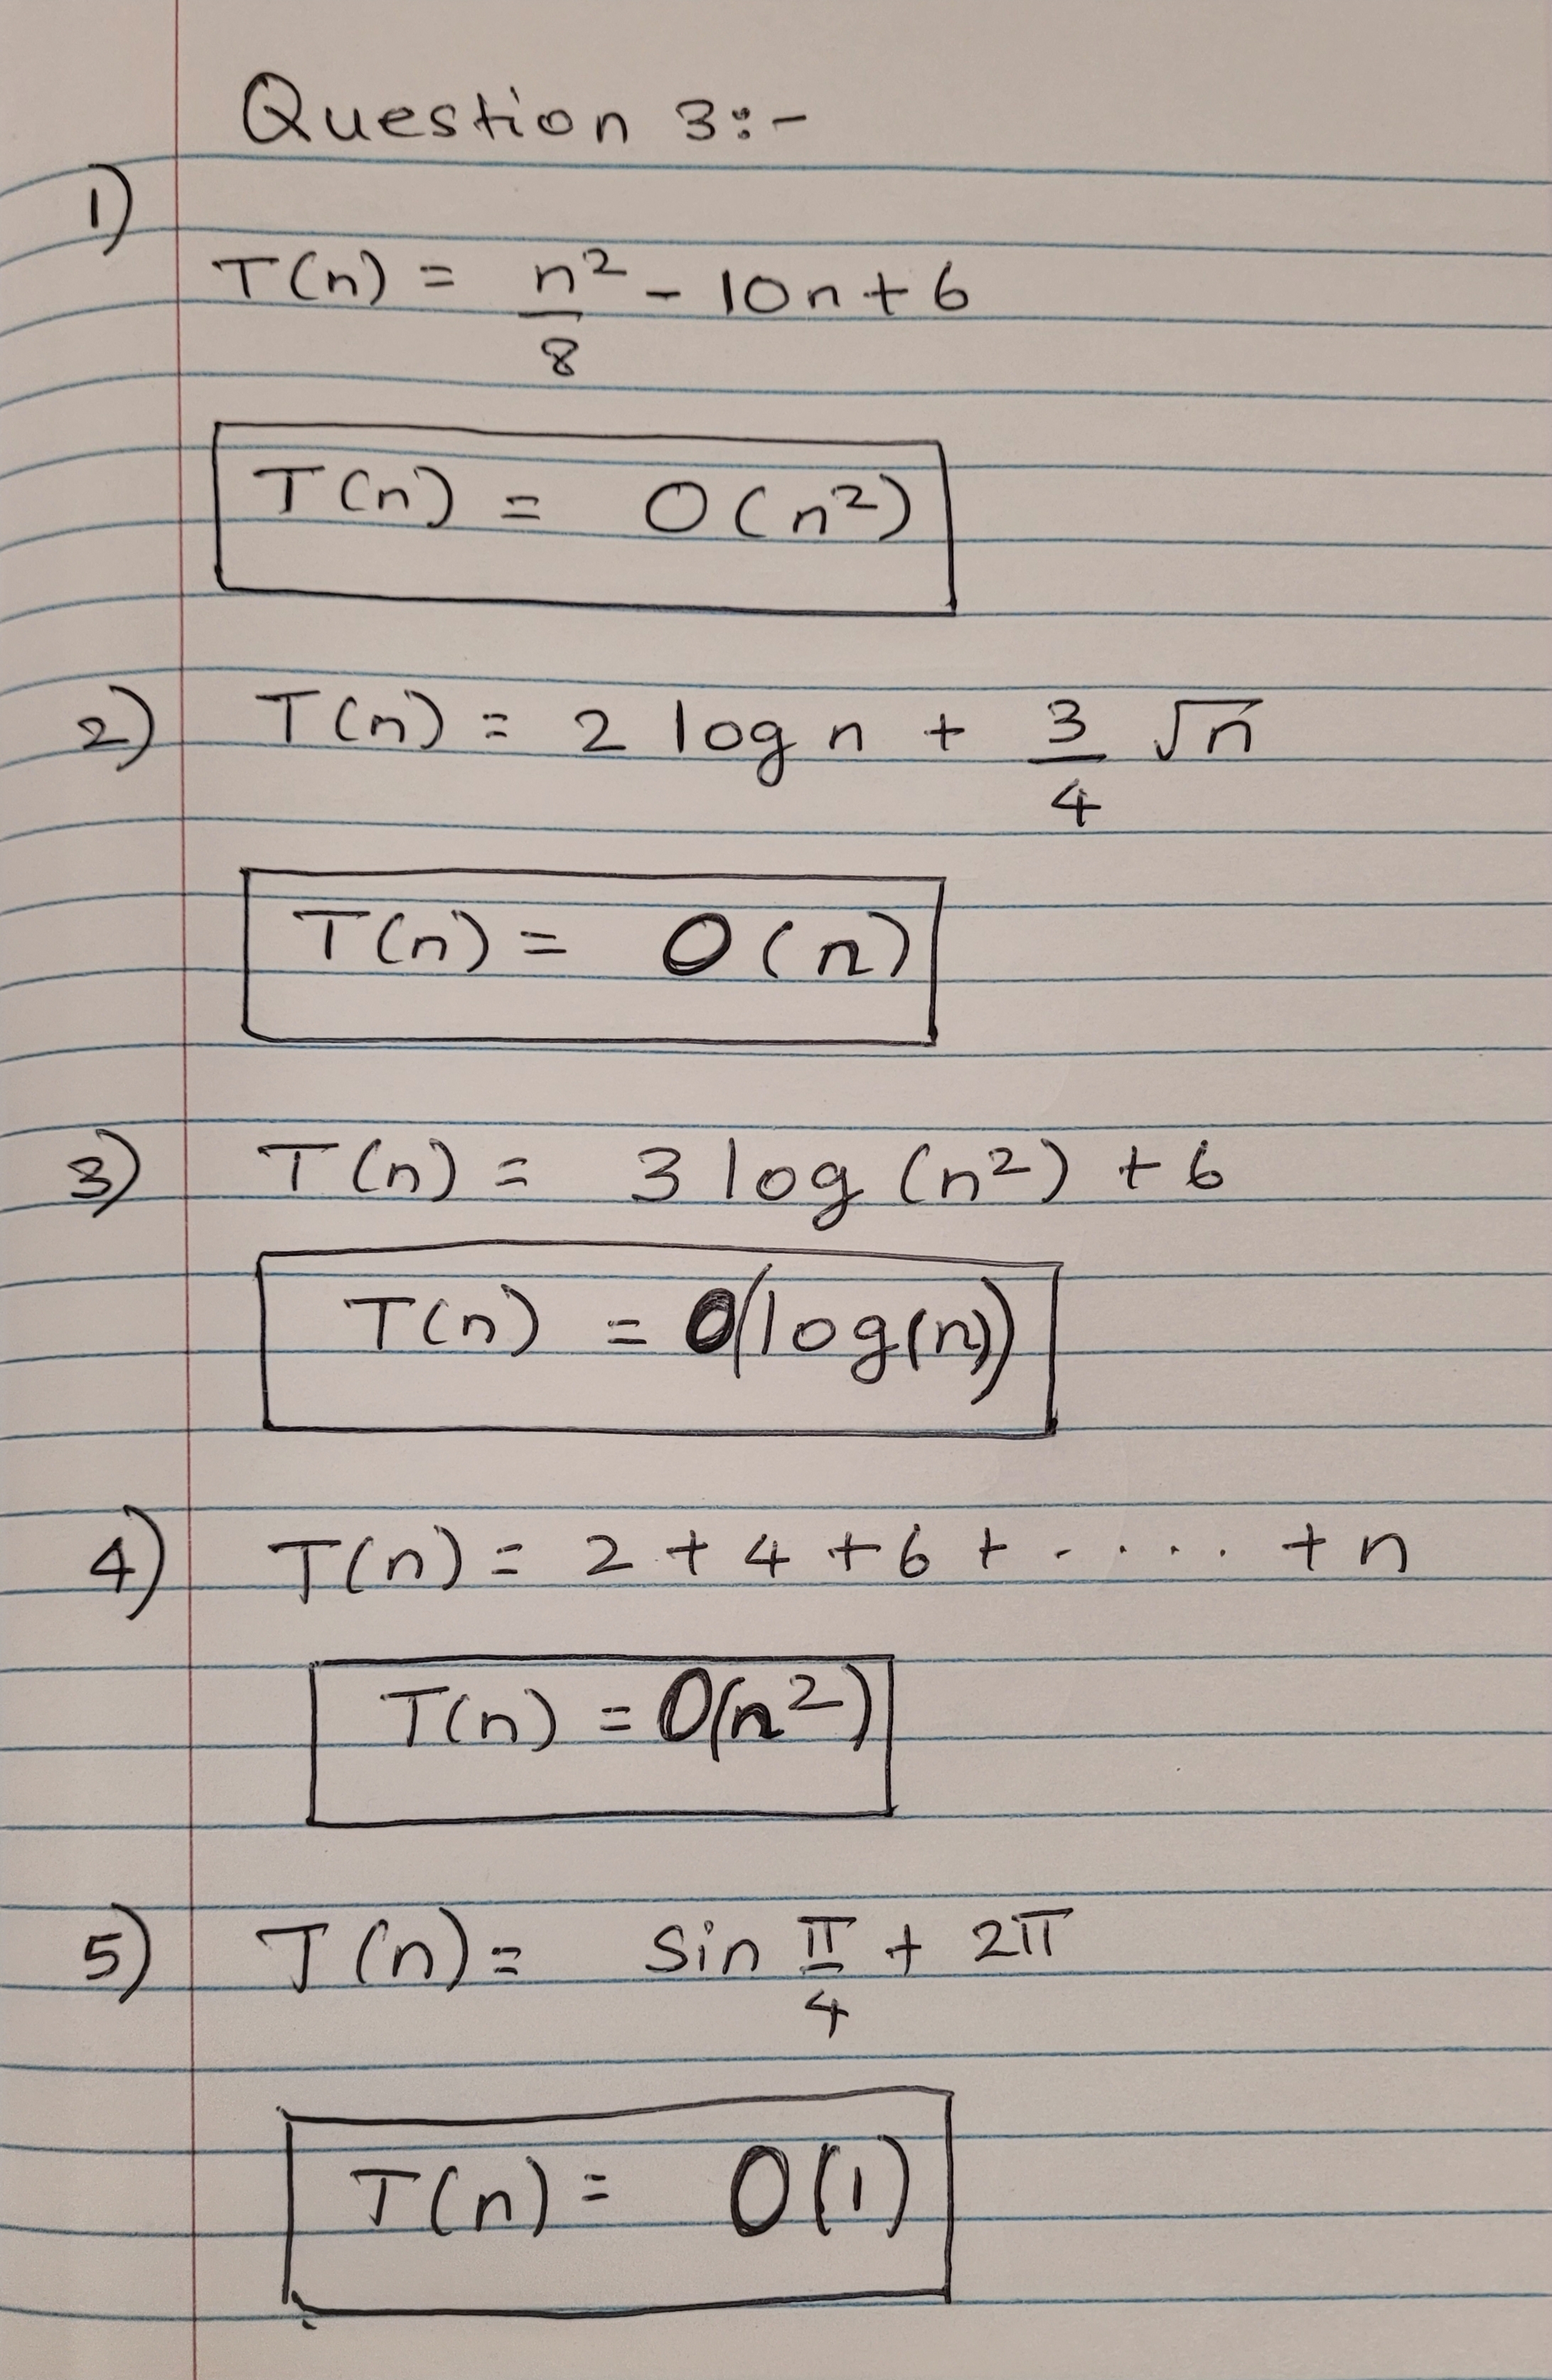 Question 3:-
1)
T(n) = n²/8 - 10n + 6
T(n) = O(n²)
2) T(n) = 2 log n + 3/4 √n
T(n) = O(n)
3) T(n) = 3 log (n²) + 6
T(n) = O(log(n))
4) T(n) = 2 + 4 + 6 + ..... + n
T(n) = O(n²)
5) T(n) = sin π/4 + 2π
T(n) = O(1)